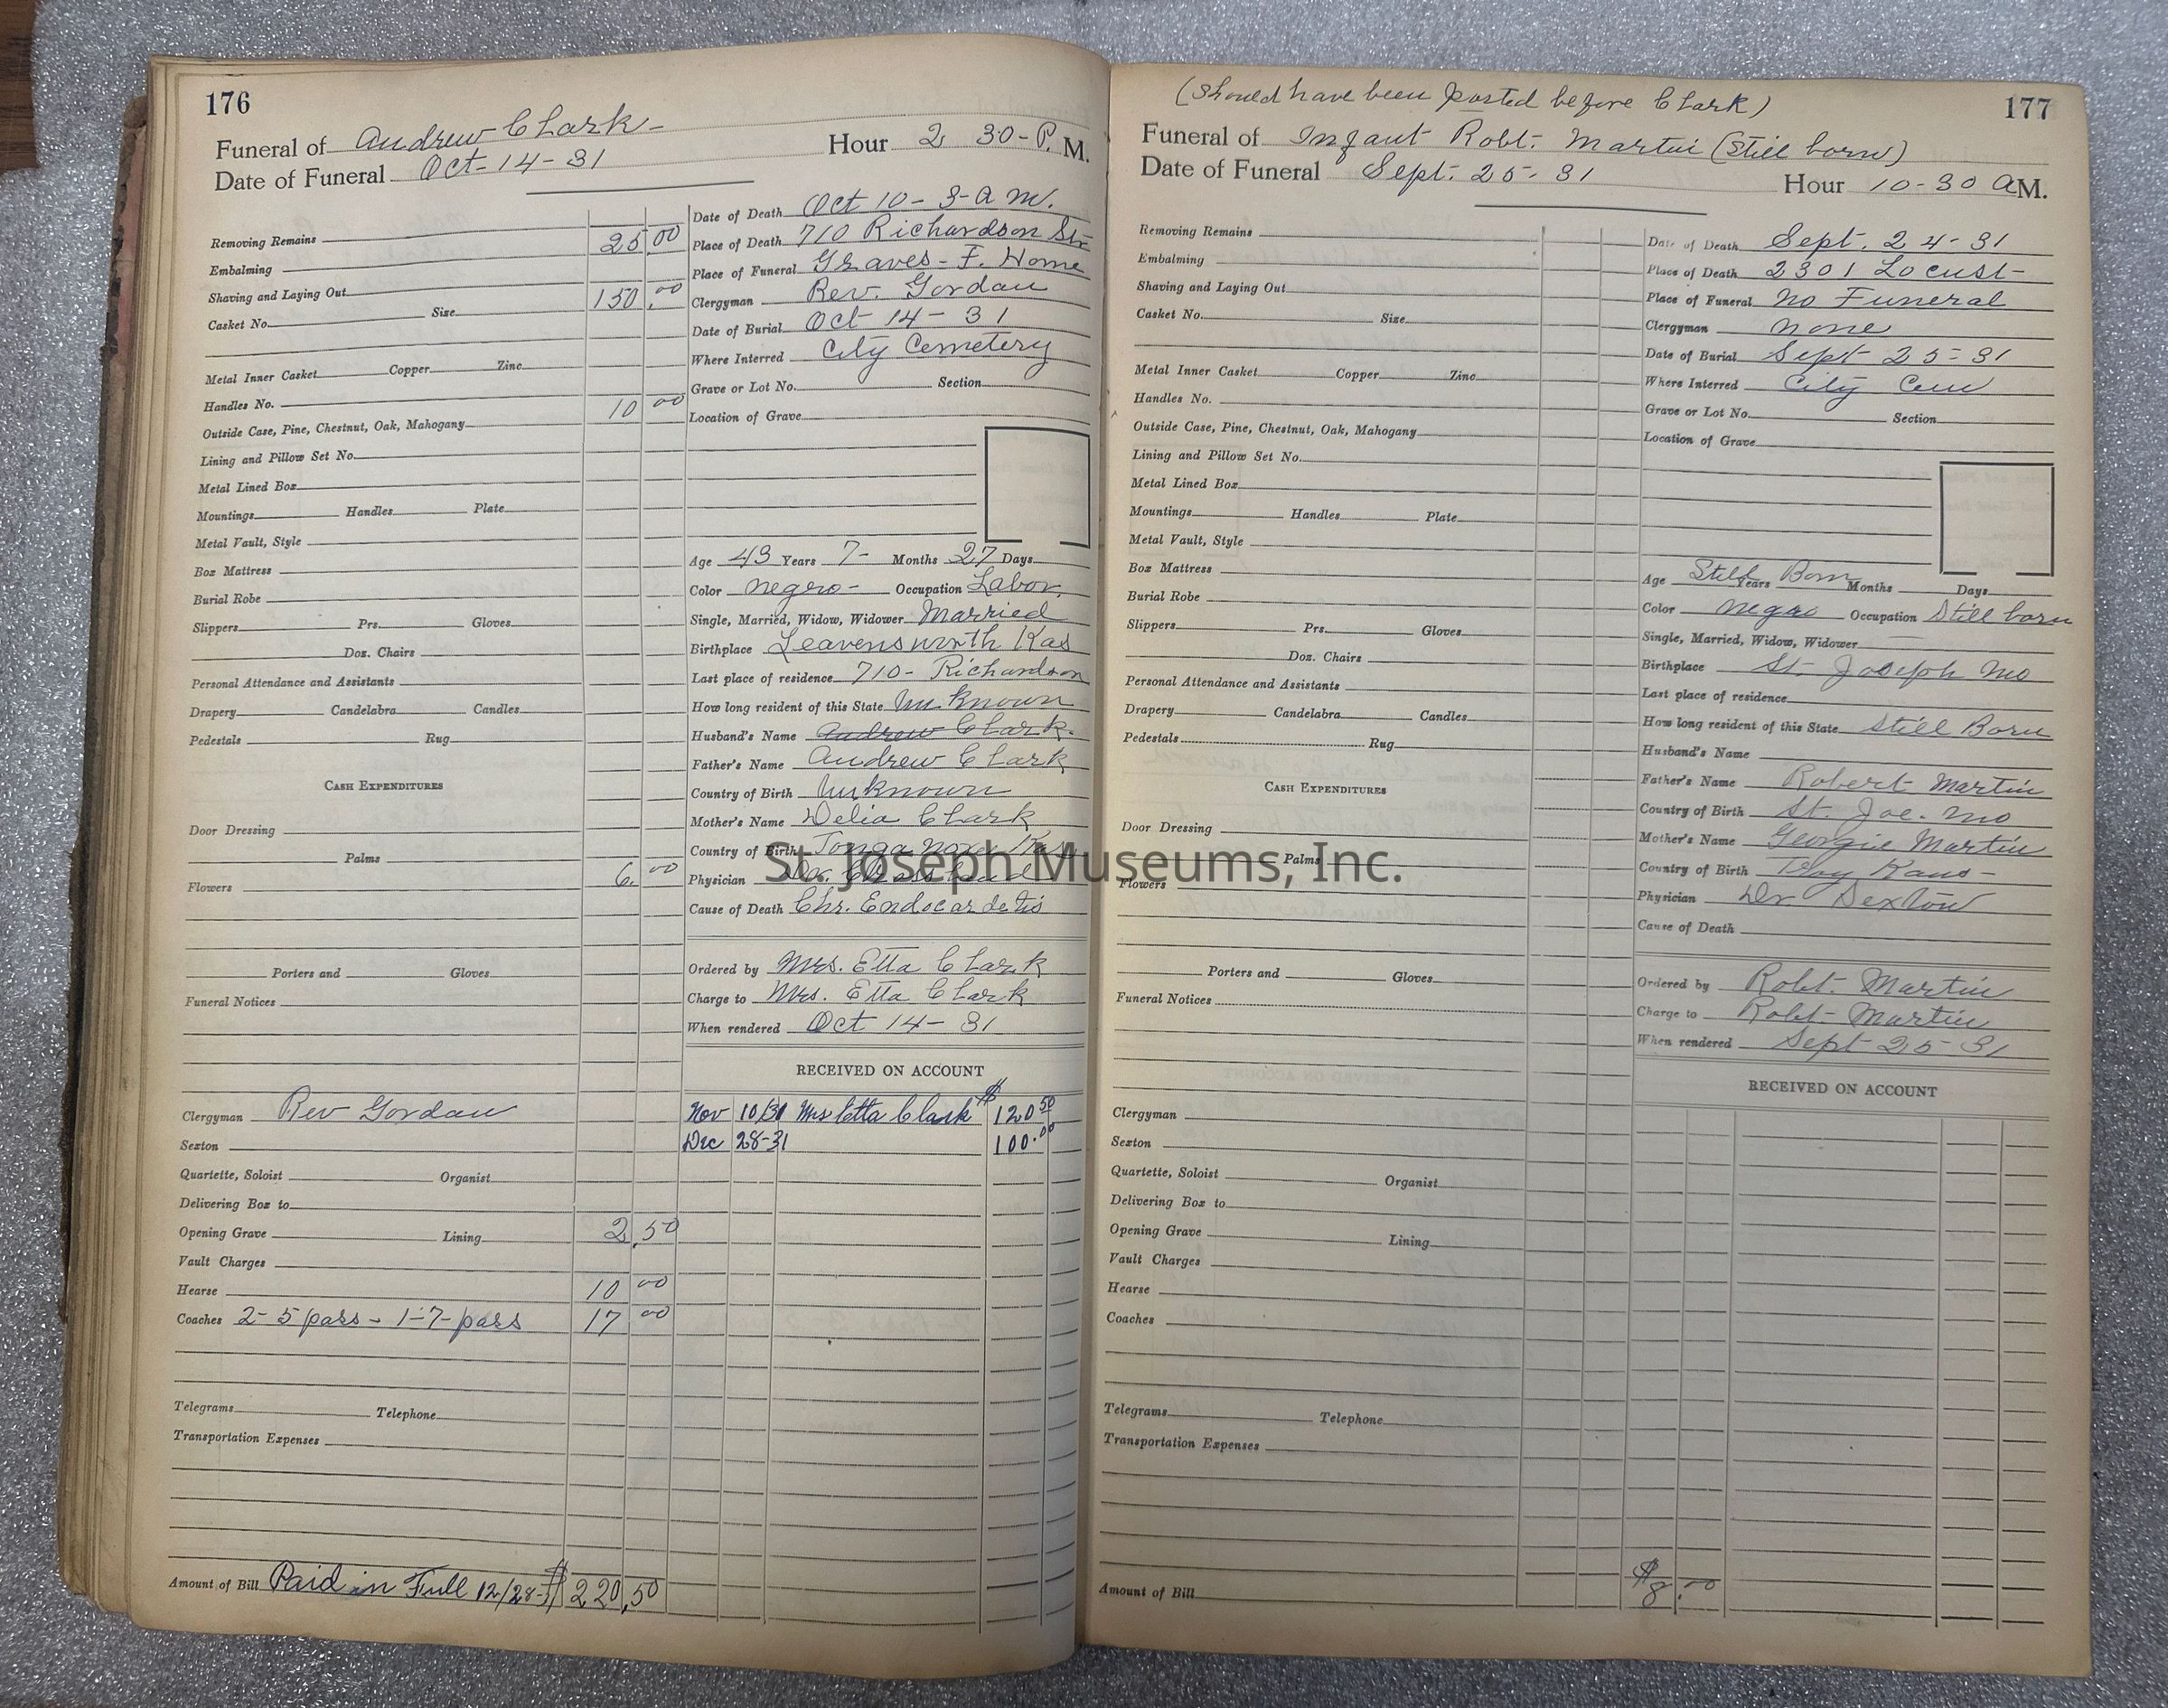 176
Funeral of Andrew Clark -
Hour 2 30- P. M.
Date of Funeral Oct- 14-31
Removing Remains
Embalming 25 00
Shaving and Laying Out
Casket No. Size 150 .00
Metal Inner Casket Copper Zinc
Handles No.
Outside Case, Pine, Chestnut, Oak, Mahogany 10 00
Lining and Pillow Set No.
Metal Lined Box
Mountings Handles Plate
Metal Vault, Style
Box Mattress
Burial Robe
Slippers Prs. Gloves
Doz. Chairs
Personal Attendance and Assistants
Drapery Candelabra Candles
Pedestals Rug
CASH EXPENDITURES
Door Dressing
Palms
Flowers 6. 00
Porters and Gloves
Funeral Notices
Clergyman Rev Gordan
Sexton
Quartette, Soloist Organist
Delivering Box to
Opening Grave Lining 2.50
Vault Charges
Hearse 10 00
Coaches 2- 5 pass - 1-7- pass 17 00
Telegrams Telephone
Transportation Expenses
Amount of Bill Paid in Full 12/28-31 $220.50
Date of Death Oct 10 - 3- a m.
Place of Death 710 Richardson Str
Place of Funeral Graves - F. Home
Clergyman Rev. Gordan
Date of Burial Oct 14- 31
Where Interred City Cemetery
Grave or Lot No. Section
Location of Grave
Age 43 Years 7- Months 27 Days
Color negro- Occupation Labor.
Single, Married, Widow, Widower Married
Birthplace Leavensworth Kas
Last place of residence 710- Richardson
How long resident of this State Unknown
Husband's Name Andrew Clark.
Father's Name Andrew Clark
Country of Birth Unknown
Mother's Name Delia Clark
Country of Birth Tonganoxie Kas
Physician Dr.
Cause of Death Chr. Endocardetis
Ordered by Mrs. Etta Clark
Charge to Mrs. Etta Clark
When rendered Oct 14- 31
RECEIVED ON ACCOUNT
Nov 10/31 Mrs Etta Clark $120 50
Dec 28-31 100.00
St. Joseph Museums, Inc.
(Should have been posted before Clark)
177
Funeral of Infant Robt. Martin (Still born)
Date of Funeral Sept. 25- 31
Hour 10-30 A M.
Removing Remains
Embalming
Shaving and Laying Out
Casket No. Size
Metal Inner Casket Copper Zinc
Handles No.
Outside Case, Pine, Chestnut, Oak, Mahogany
Lining and Pillow Set No.
Metal Lined Box
Mountings Handles Plate
Metal Vault, Style
Box Mattress
Burial Robe
Slippers Prs. Gloves
Doz. Chairs
Personal Attendance and Assistants
Drapery Candelabra Candles
Pedestals Rug
CASH EXPENDITURES
Door Dressing
Palms
Flowers
Porters and Gloves
Funeral Notices
Clergyman
Sexton
Quartette, Soloist Organist
Delivering Box to
Opening Grave Lining
Vault Charges
Hearse
Coaches
Telegrams Telephone
Transportation Expenses
Amount of Bill $8.00
Date of Death Sept. 24-31
Place of Death 2301 Locust-
Place of Funeral No Funeral
Clergyman none
Date of Burial Sept- 25-31
Where Interred City Cem
Grave or Lot No. Section
Location of Grave
Age Still Years Born Months Days
Color negro Occupation Still born
Single, Married, Widow, Widower
Birthplace St. Joseph Mo
Last place of residence
How long resident of this State Still Born
Husband's Name
Father's Name Robert Martin
Country of Birth St. Joe. Mo
Mother's Name Georgie Martin
Country of Birth Troy Kans-
Physician Dr Sexton
Cause of Death
Ordered by Robt. Martin
Charge to Robt- Martin
When rendered Sept- 25-31
RECEIVED ON ACCOUNT